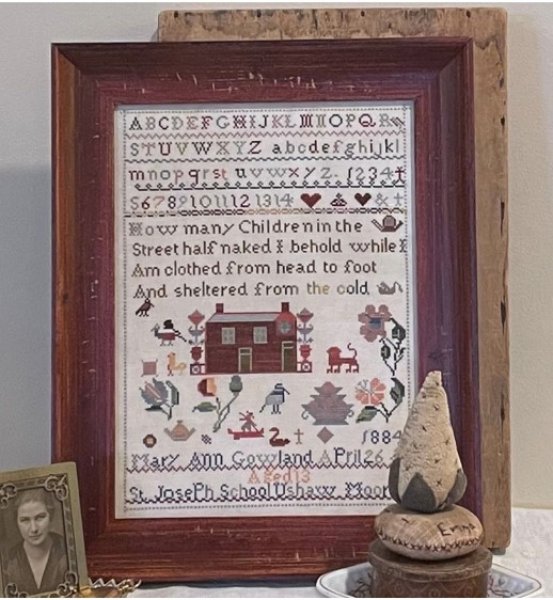 ABCDEFGHIJKLMNOPQR
STUVWXYZ abcdefghijkl
mnopqrst uvwxyz. 1234
567891011121314 &
How many Children in the
Street half naked I behold while I
Am clothed from head to foot
And sheltered from the cold
1884
Mary Ann Gowland April 26
Aged 13
St Joseph School Ushaw Moor
Emma